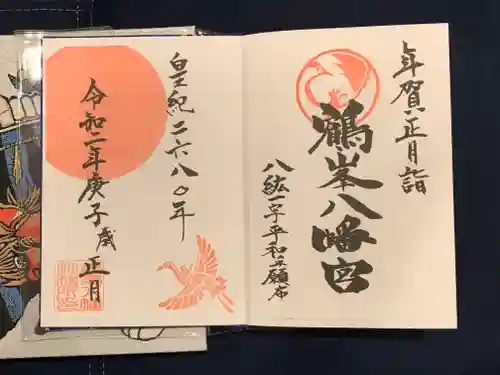 年賀正月詣
鶴峯八幡宮
八紘一宇平和祈願布
皇紀二六八〇年
令和二年庚子歳正月